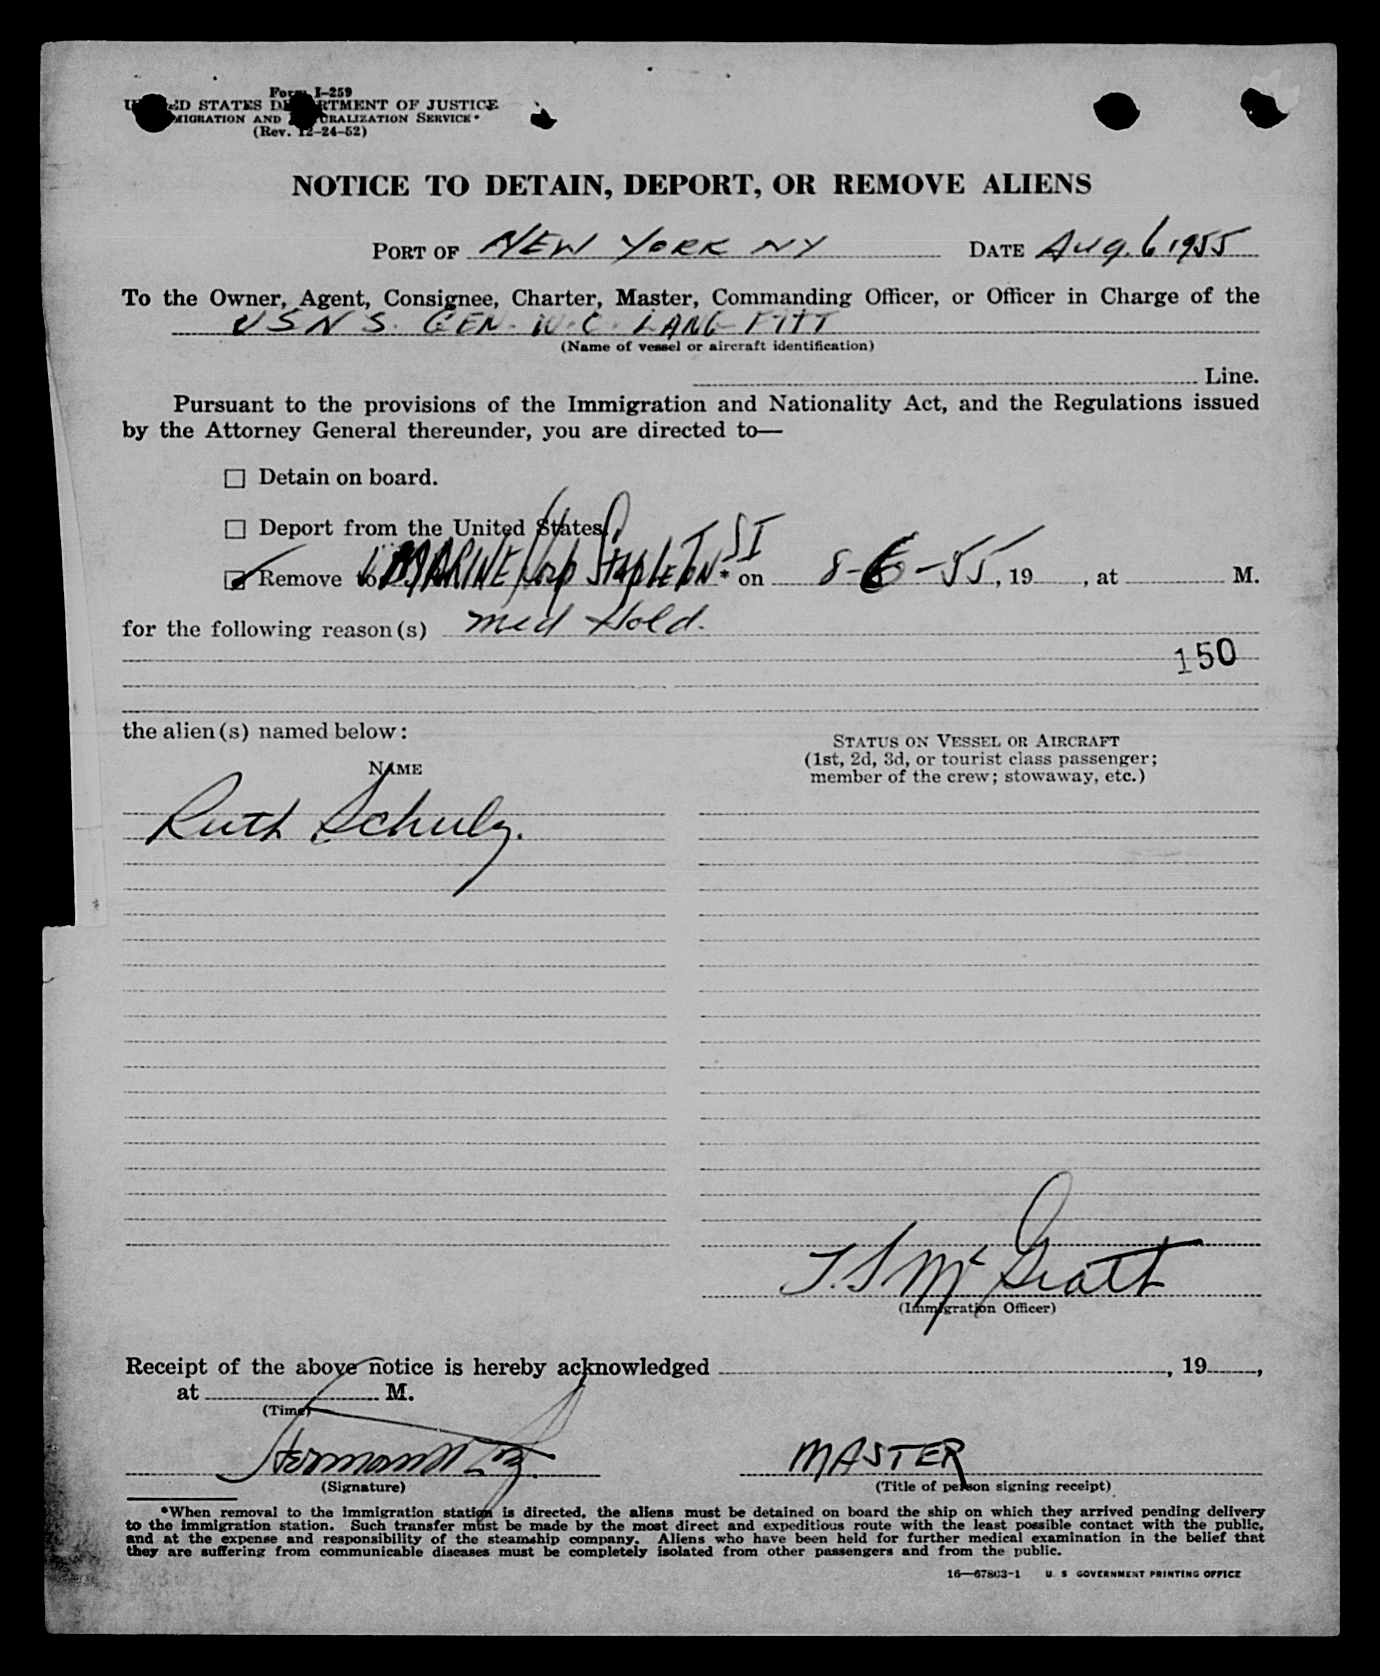 Form I-259
UNITED STATES DEPARTMENT OF JUSTICE
IMMIGRATION AND NATURALIZATION SERVICE
(Rev. 12-24-52)
NOTICE TO DETAIN, DEPORT, OR REMOVE ALIENS
PORT OF NEW YORK NY DATE Aug. 6 1955
To the Owner, Agent, Consignee, Charter, Master, Commanding Officer, or Officer in Charge of the
USNS. GEN. W.C. LANGFITT
(Name of vessel or aircraft identification)
Line.
Pursuant to the provisions of the Immigration and Nationality Act, and the Regulations issued
by the Attorney General thereunder, you are directed to—
☐ Detain on board.
☐ Deport from the United States.
☑ Remove to MARINE Hosp STAPLETON SI * on 8-6-55, 19 , at M.
for the following reason(s) Med Hold.
150
the alien(s) named below:
NAME
STATUS ON VESSEL OR AIRCRAFT
(1st, 2d, 3d, or tourist class passenger;
member of the crew; stowaway, etc.)
Ruth Schulz.
(Immigration Officer)
Receipt of the above notice is hereby acknowledged , 19 ,
at M.
(Time)
MASTER
(Signature) (Title of person signing receipt)
*When removal to the immigration station is directed, the aliens must be detained on board the ship on which they arrived pending delivery
to the immigration station. Such transfer must be made by the most direct and expeditious route with the least possible contact with the public,
and at the expense and responsibility of the steamship company. Aliens who have been held for further medical examination in the belief that
they are suffering from communicable diseases must be completely isolated from other passengers and from the public.
16—67803-1 U. S. GOVERNMENT PRINTING OFFICE